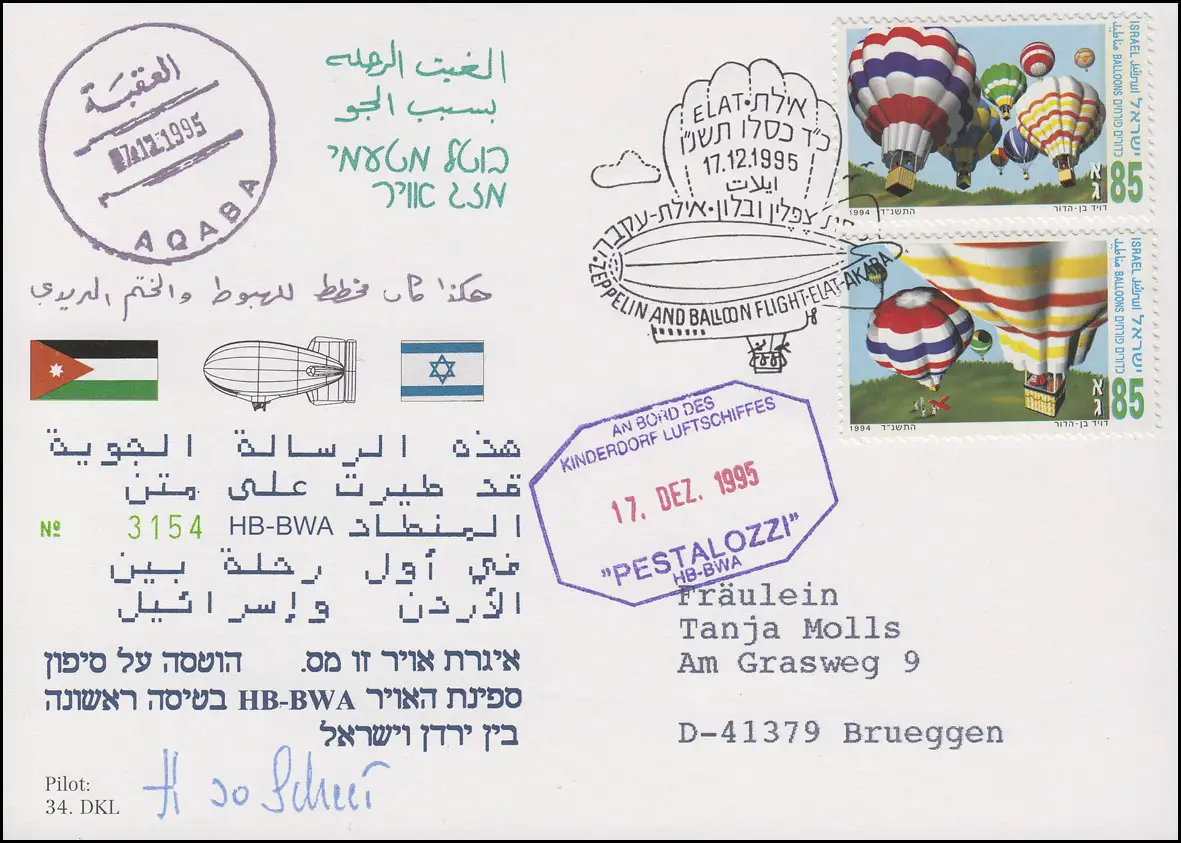 العقبة
17.12.1995
AQABA
الغيت الرحله
بسبب الجو
בוטל מטעמי
מזג אוויר
هكذا كان مخطط للهبوط والختم البريدي
אילת • ELAT
כ"ד כסלו תשנ"ו
17.12.1995
ايلات
צפלין ובלון • אילת-עקבה •
ZEPPELIN AND BALLOON FLIGHT-ELAT-AKABA
ISRAEL اسرائيل ישראל
BALLOONS مناطيد כדורים פורחים
א
ג
85
1994 התשנ"ד דויד בן-הדור
ISRAEL اسرائيل ישראל
BALLOONS مناطيد כדורים פורחים
א
ג
85
1994 התשנ"ד דויד בן-הדור
AN BORD DES
KINDERDORF LUFTSCHIFFES
17. DEZ. 1995
"PESTALOZZI"
HB-BWA
هذه الرسالة الجوية
قد طيرت على متن
المنطاد HB-BWA 3154 №
في أول رحلة بين
الأردن وإسرائيل
איגרת אויר זו מס. הוטסה על סיפון
ספינת האויר HB-BWA בטיסה ראשונה
בין ירדן וישראל
Pilot:
34. DKL
Fräulein
Tanja Molls
Am Grasweg 9
D-41379 Brueggen